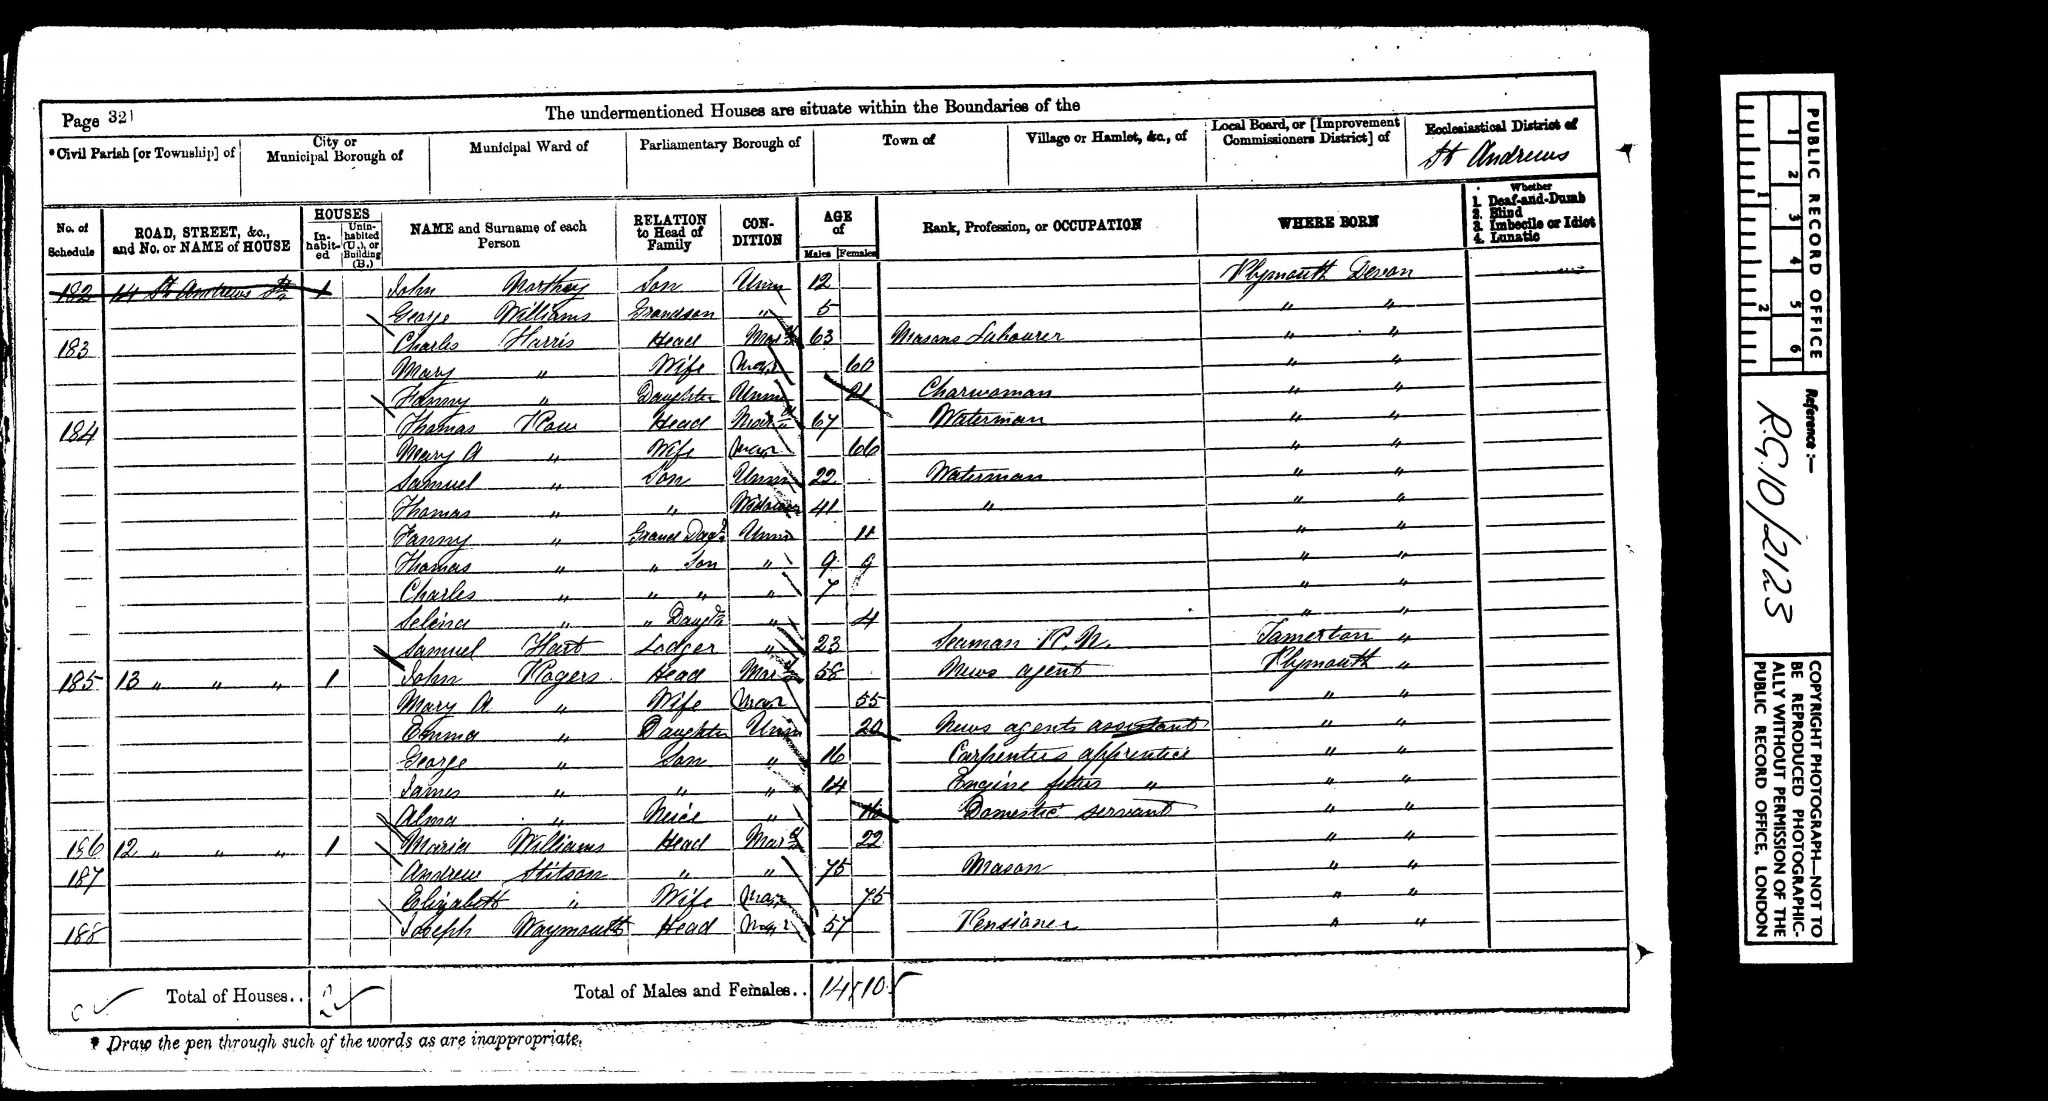 Page 32
The undermentioned Houses are situate within the Boundaries of the
*Civil Parish [or Township] of
City or Municipal Borough of
Municipal Ward of
Parliamentary Borough of
Town of
Village or Hamlet, &c., of
Local Board, or [Improvement Commissioners District] of
Ecclesiastical District of
St Andrews
No. of Schedule
ROAD, STREET, &c., and No. or NAME of HOUSE
HOUSES
In-habit-ed
Unin-habited (U.), or Building (B.)
NAME and Surname of each Person
RELATION to Head of Family
CON-DITION
AGE of
Males Females
Rank, Profession, or OCCUPATION
WHERE BORN
Whether
1. Deaf-and-Dumb
2. Blind
3. Imbecile or Idiot
4. Lunatic
182 14 St Andrews St 1 John Northey Son Unm 12 Plymouth Devon
George Williams Grandson " 5 " "
183 Charles Harris Head Mard 63 Masons Labourer " "
Mary " Wife Mar 60 " "
Fanny " Daughter Unm 21 Charwoman " "
184 Thomas Row Head Mard 67 Waterman " "
Mary A " Wife Mar 66 " "
Samuel " Son Unm 22 Waterman " "
Thomas " " Widower 41 " " "
Fanny " Grand Daugr Unm 11 " "
Thomas " " Son " 9 9 " "
Charles " " " " 7 " "
Selina " " Daugr " 4 " "
Samuel Hart Lodger " 23 Seaman R.N. Tamerton "
185 13 " " " 1 John Rogers Head Mard 58 News agent Plymouth "
Mary A " Wife Mar 55 " "
Emma " Daughter Unm 20 News agents assistant " "
George " Son " 16 Carpenters apprentice " "
James " " " 14 Engine fitters " " "
Alma " Neice " 16 Domestic servant " "
186 12 " " " 1 Maria Williams Head Mard 22 " "
187 Andrew Stitson " " 75 Mason " "
Elizabeth " Wife Mar 75 " "
188 Joseph Waymouth Head Mar 57 Pensioner " "
Total of Houses.. 2
Total of Males and Females.. 14 10
* Draw the pen through such of the words as are inappropriate.
PUBLIC RECORD OFFICE
1 2 3 4 5 6
1 2
Reference:-
R.G.10/2123
COPYRIGHT PHOTOGRAPH—NOT TO
BE REPRODUCED PHOTOGRAPHIC-
ALLY WITHOUT PERMISSION OF THE
PUBLIC RECORD OFFICE, LONDON